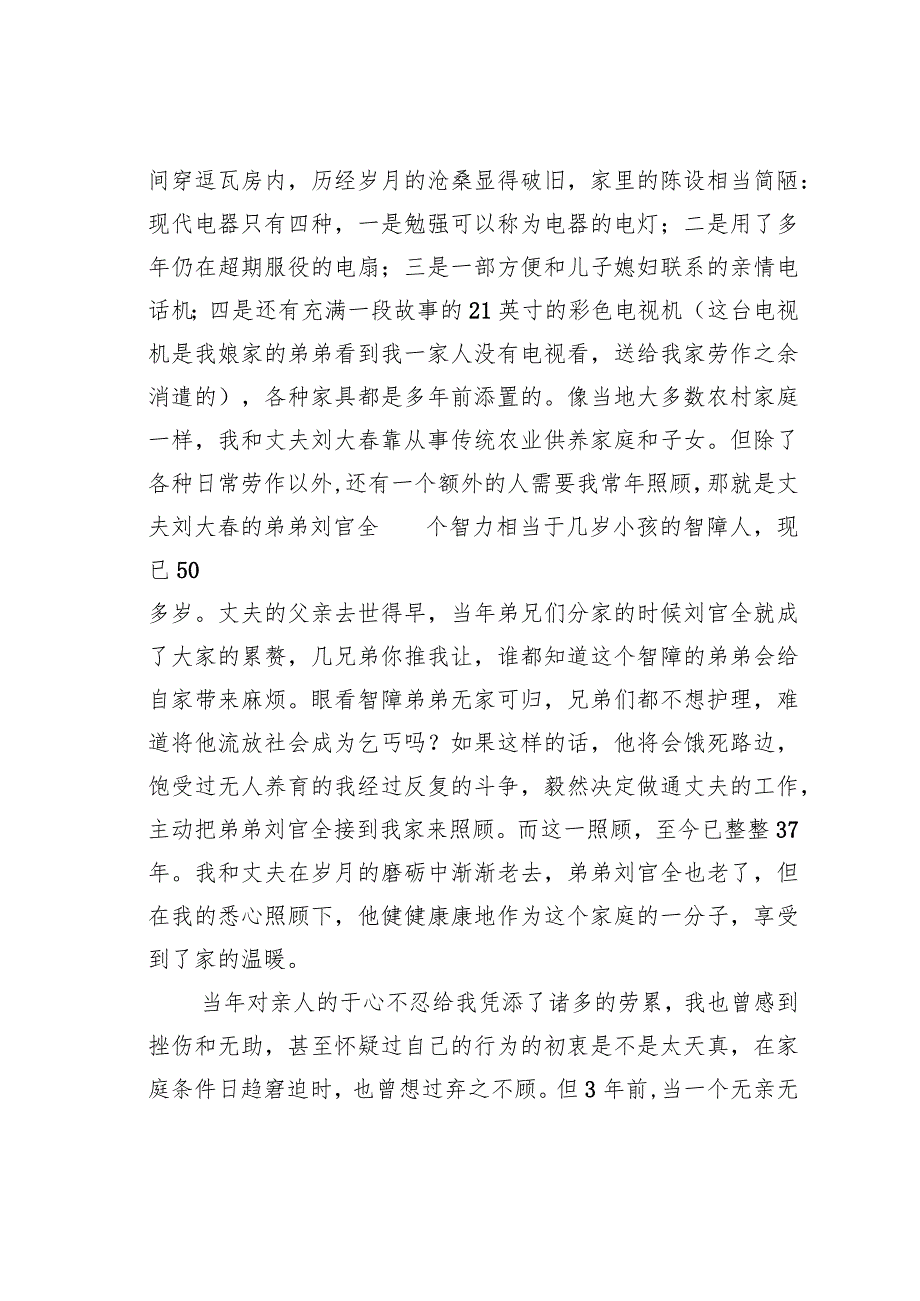 间穿逗瓦房内，历经岁月的沧桑显得破旧，家里的陈设相当简陋：
现代电器只有四种，一是勉强可以称为电器的电灯；二是用了多
年仍在超期服役的电扇；三是一部方便和儿子媳妇联系的亲情电
话机；四是还有充满一段故事的 21 英寸的彩色电视机（这台电视
机是我娘家的弟弟看到我一家人没有电视看，送给我家劳作之余
消遣的），各种家具都是多年前添置的。像当地大多数农村家庭
一样，我和丈夫刘大春靠从事传统农业供养家庭和子女。但除了
各种日常劳作以外,还有一个额外的人需要我常年照顾，那就是丈
夫刘大春的弟弟刘官全　　个智力相当于几岁小孩的智障人，现
已 50
多岁。丈夫的父亲去世得早，当年弟兄们分家的时候刘官全就成
了大家的累赘，几兄弟你推我让，谁都知道这个智障的弟弟会给
自家带来麻烦。眼看智障弟弟无家可归，兄弟们都不想护理，难
道将他流放社会成为乞丐吗？如果这样的话，他将会饿死路边，
饱受过无人养育的我经过反复的斗争，毅然决定做通丈夫的工作，
主动把弟弟刘官全接到我家来照顾。而这一照顾，至今已整整 37
年。我和丈夫在岁月的磨砺中渐渐老去，弟弟刘官全也老了，但
在我的悉心照顾下，他健健康康地作为这个家庭的一分子，享受
到了家的温暖。
当年对亲人的于心不忍给我凭添了诸多的劳累，我也曾感到
挫伤和无助，甚至怀疑过自己的行为的初衷是不是太天真，在家
庭条件日趋窘迫时，也曾想过弃之不顾。但 3 年前,当一个无亲无